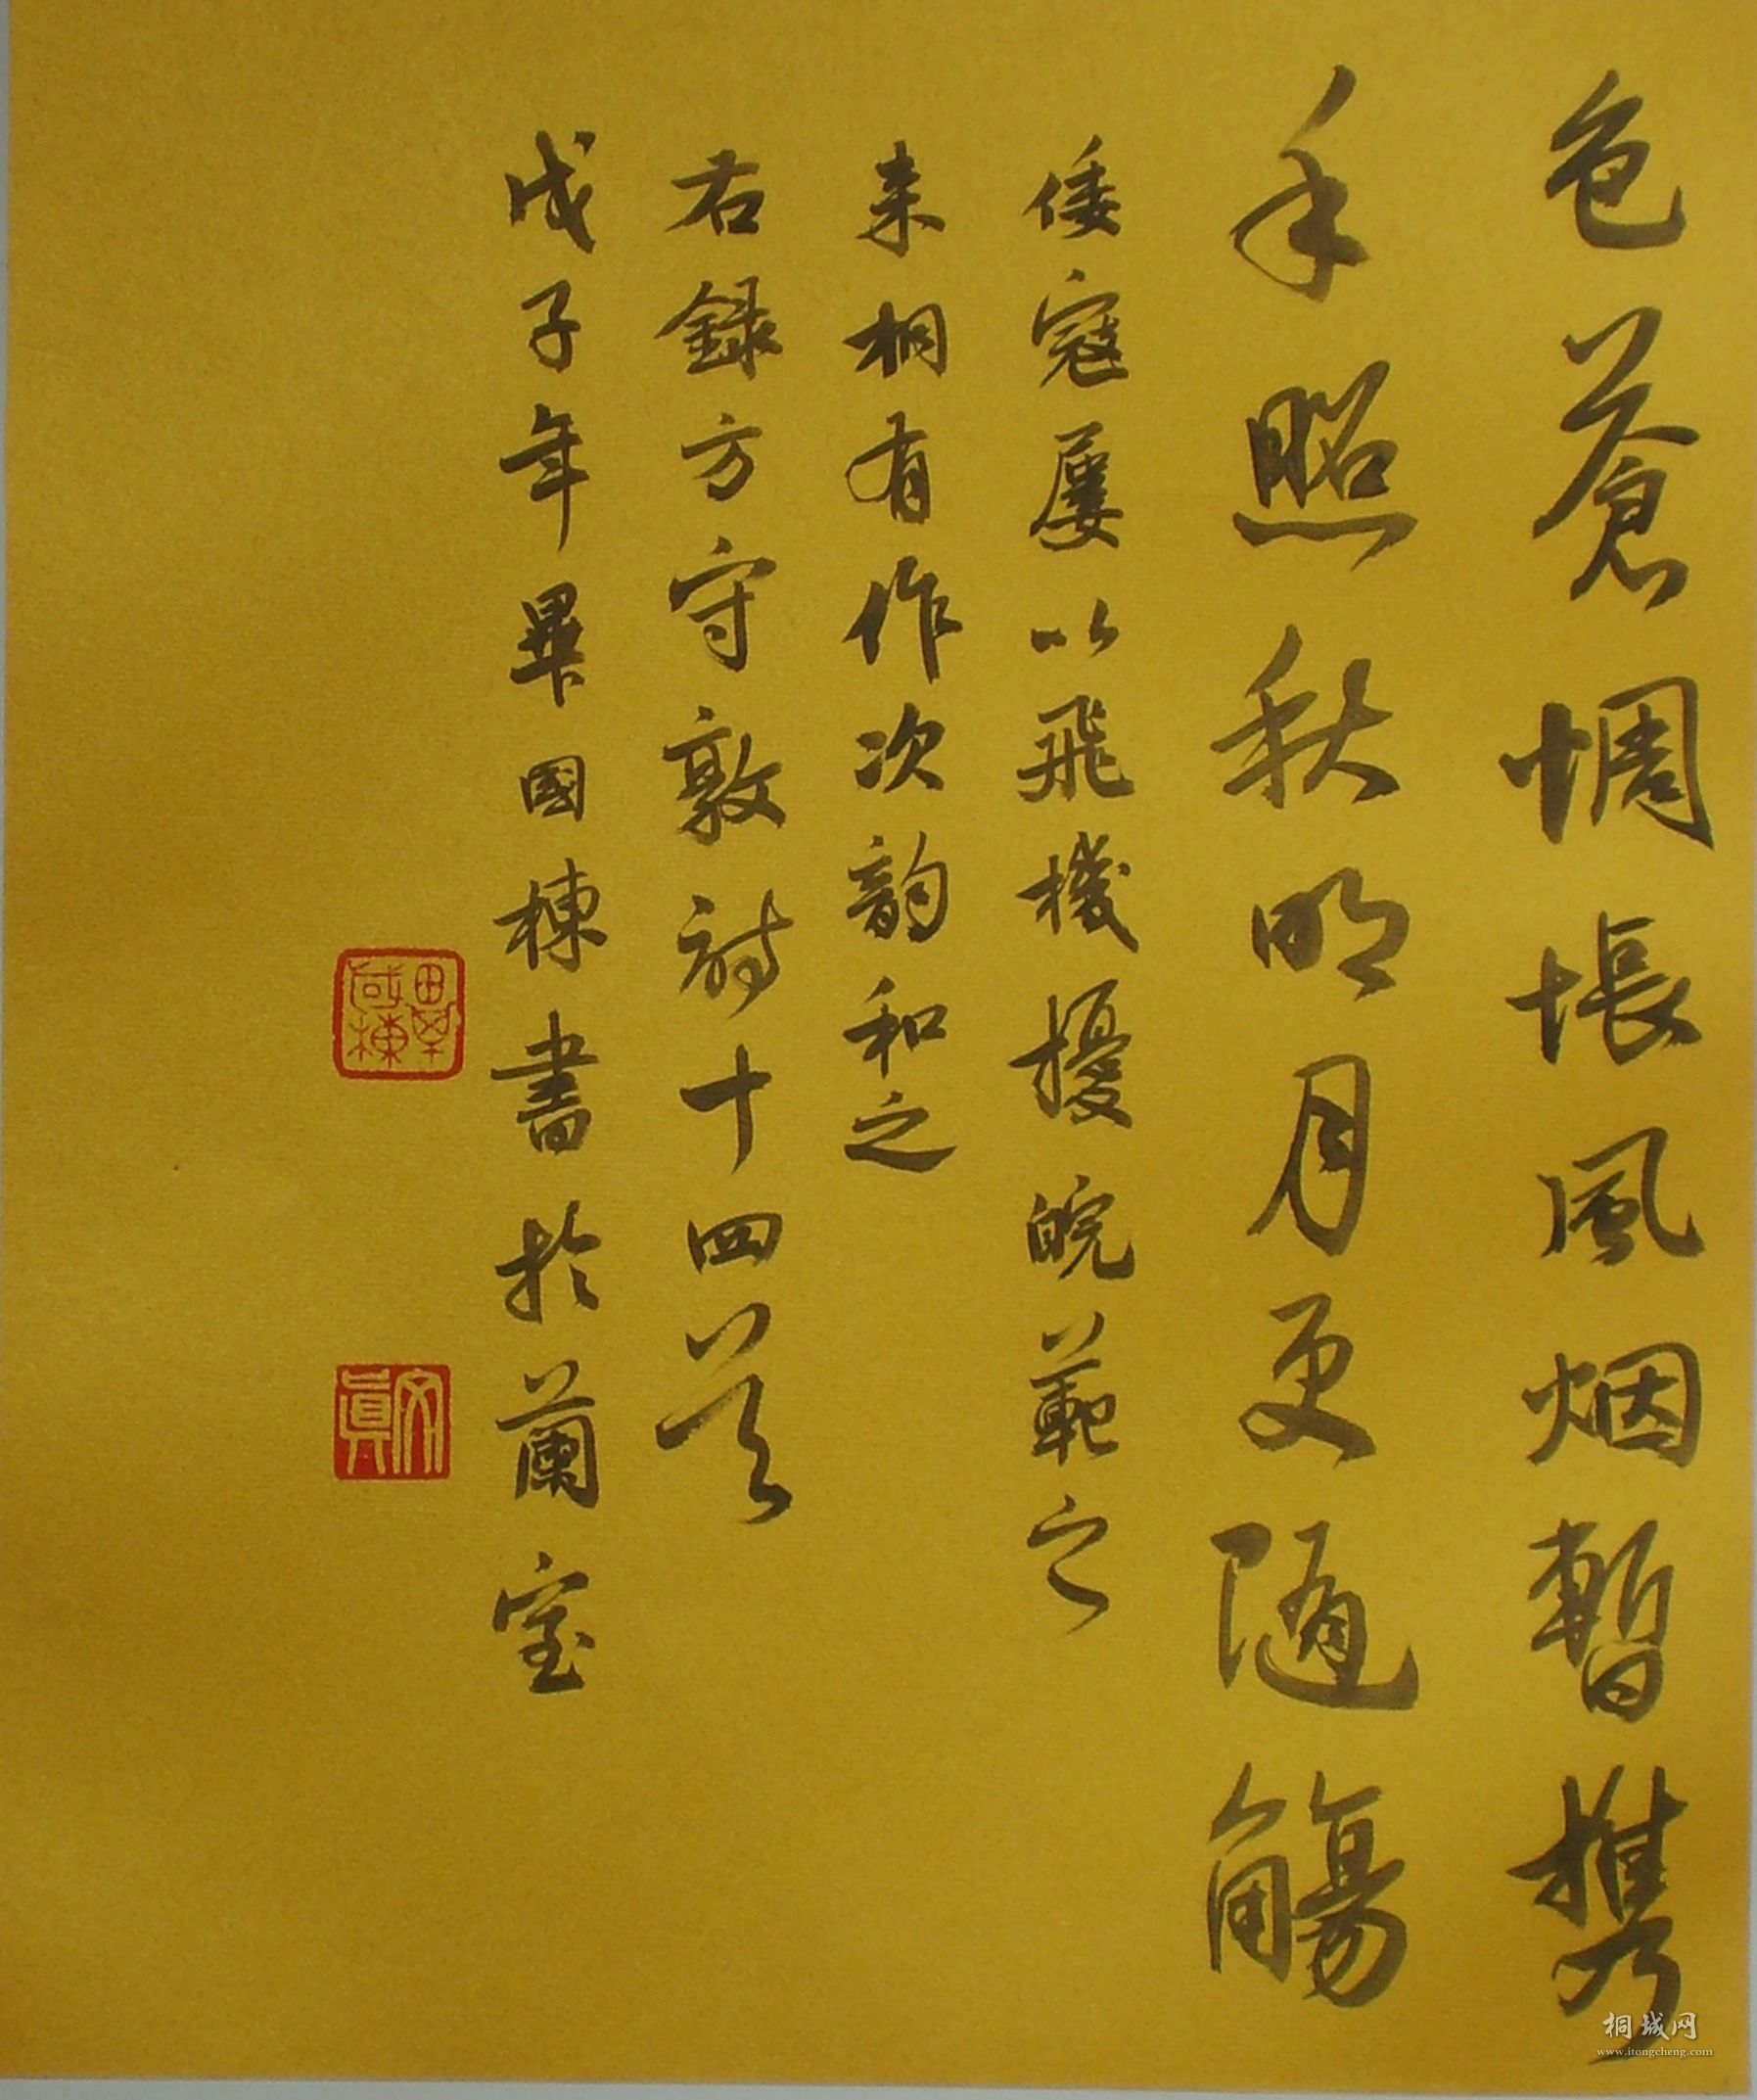 色蒼惆悵風烟暫攜
手照秋明月更隨觴
倭寇屢以飛機擾皖範之
来桐有作次韵和之
右錄方守敦詩十四首
戊子年畢國棟書於蘭室
畢國棟
文真
桐城网
www.itongcheng.com